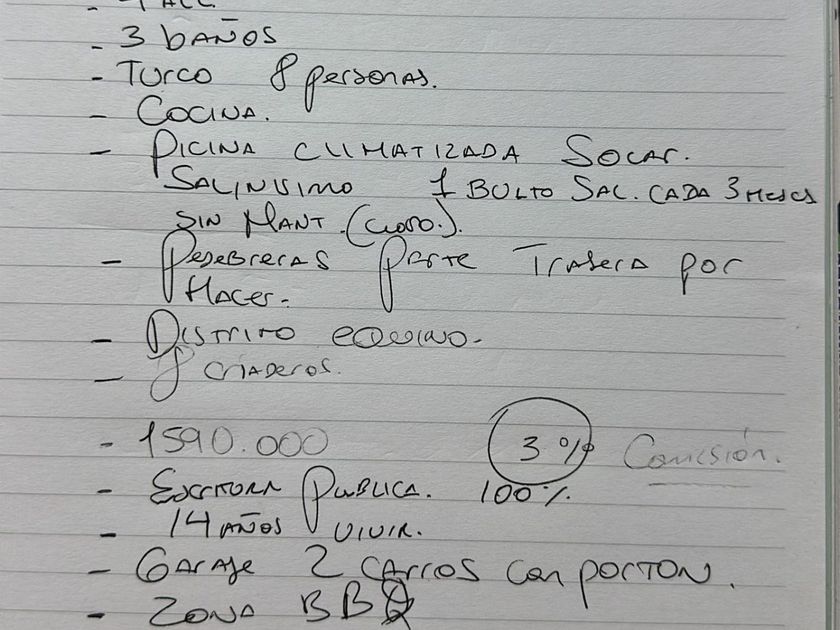 - 3 BAÑOS
- TURCO 8 personas.
- COCINA.
- PICINA CLIMATIZADA SOCAR.
SALINISIMO 1 BULTO SAL. CADA 3 MESES
SIN MANT. (CLORO.).
- Pesebreras PArTE TrASerA por
HACer.
- DISTRITO eQUINO.
- 8 CriADeros.
- 1590.000 3% Comisión.
- ESCRITURA PUBLICA. 100%
- 14 AÑOS VIVIR.
- GArAje 2 CArros Con porTON.
- ZONA BBQ